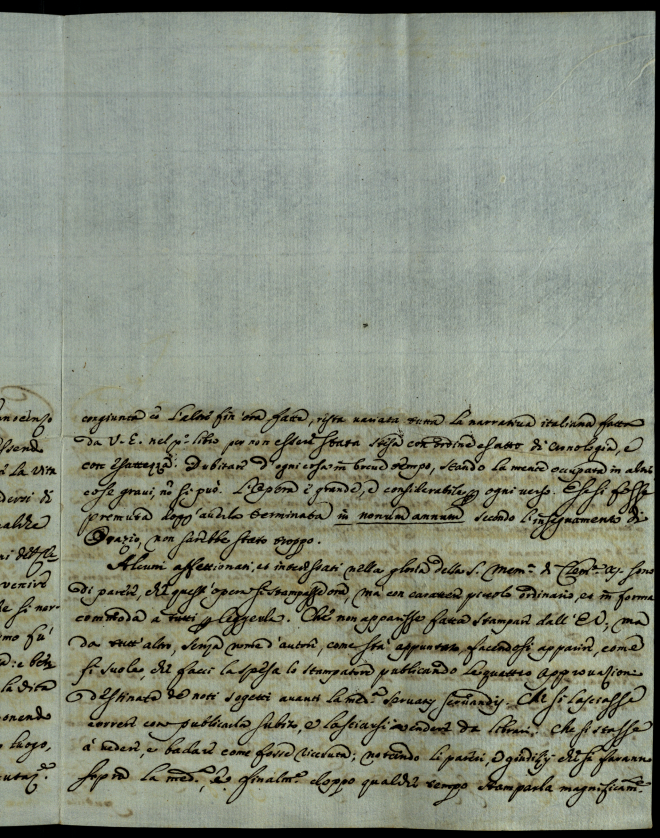 nnocenzo
essendo
la vita
venire
mo fù
la ditta
ponendo
luogo,
congiunta cõ l'altre fin'ora fatte, resta variata tutta la narrativa italiana fatta
da V. E. nel pº. libro per non essere stata stesa con ordine esatto di cronologia, e
con esattezza. Dubitare d'ogni cosa in breve tempo, stando la mente occupata in altre
cose gravi, nõ si può. L'opera è grande, e considerabile ogni verso. E se si fosse
premuta doppo averla terminata in nonum annum secondo l'insegnamento di
Orazio, non sarebbe stato troppo.
Alcuni affezionati, et interessati nella gloria della S. Mem.ª di Clem.te XI. sono
di parere, che quest'opera si stampasse ora, ma con carattere piccolo ordinario, et in forma
commoda a tutti leggerla. Che non apparisse farsi stampare dall'E.V., ma
da tutt'altro, senza nome d'autore, come stà appuntato, facendosi apparire, come
si suole, che facci la spesa lo stampatore publicando le quattro approvazioni
destinate de noti sogetti avanti la med.ª servatis servandis. Che si lasciasse
correre con publicarla subito, e lasciarsi vendere da librari. Che si stasse
à vedere, e badare come fosse ricevuta; notando li pareri, e giudizij che si faranno
sopra la med.ª, e finalm.te doppo qualche tempo stamparla magnificam.te